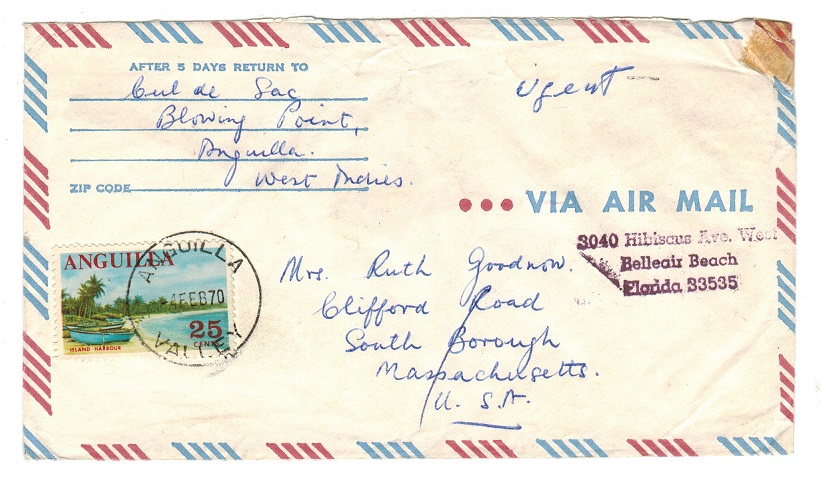 AFTER 5 DAYS RETURN TO
Cul de Sac
Blowing Point,
Anguilla.
ZIP CODE West Indies.
Urgent
VIA AIR MAIL
3040 Hibiscus Ave. West
Belleair Beach
Florida 33535
ANGUILLA
25
CENTS
ISLAND HARBOUR
ANGUILLA
4FEB70
VALLEY
Mrs. Ruth Goodnow.
Clifford Road
South Borough
Massachusetts.
U.S.A.